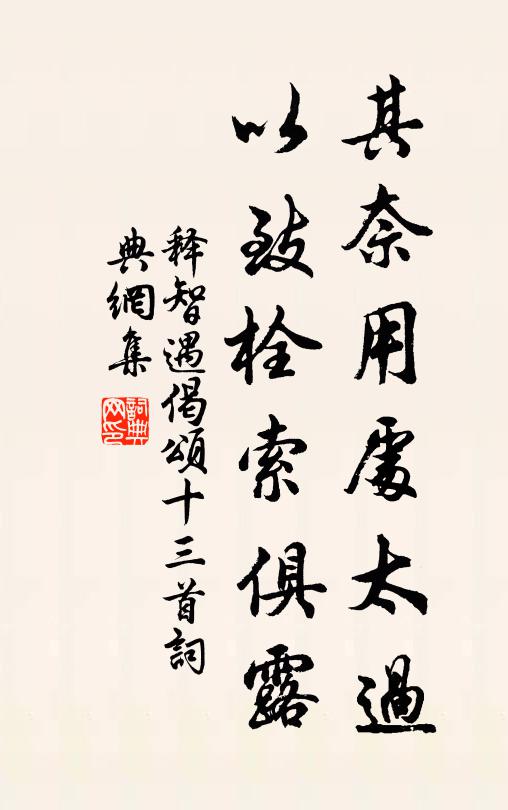 其奈用處太過
以致栓索俱露
释智遇偈頌十三首詞
典網集
詞典
网印